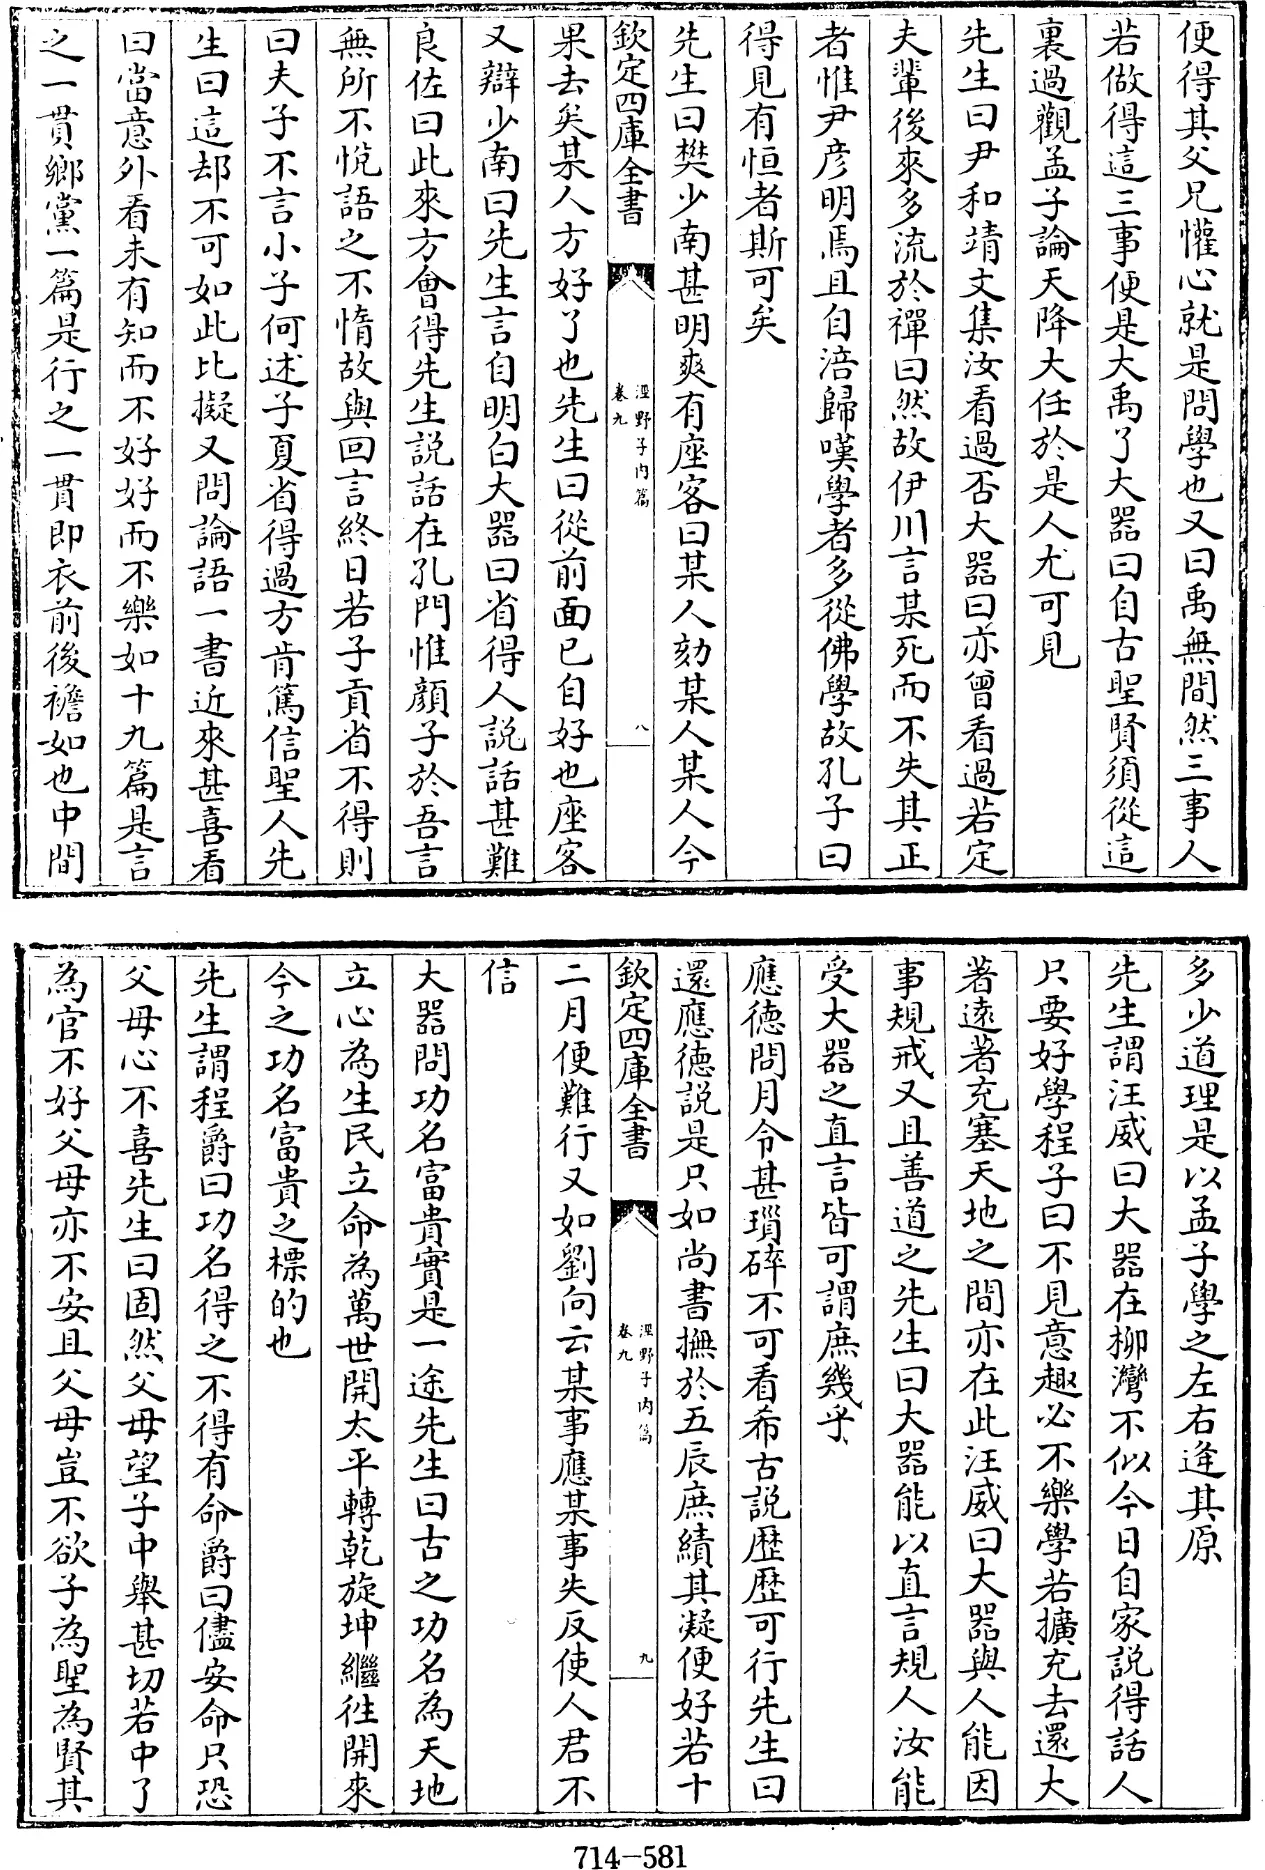 便得其父兄懽心就是問學也又曰禹無間然三事人
若做得這三事便是大禹了大器曰自古聖賢須從這
裏過觀孟子論天降大任於是人尤可見
先生曰尹和靖文集汝看過否大器曰亦曾看過若定
夫輩後來多流於禪曰然故伊川言某死而不失其正
者惟尹彦明焉且自涪歸嘆學者多從佛學故孔子曰
得見有恒者斯可矣
先生曰樊少南甚明爽有座客曰某人劾某人某人今
欽定四庫全書
涇野子内篇
卷九
八
果去矣某人方好了也先生曰從前面已自好也座客
又辯少南曰先生言自明白大器曰省得人説話甚難
良佐曰此來方會得先生説話在孔門惟顔子於吾言
無所不悦語之不惰故與回言終日若子貢省不得則
曰夫子不言小子何述子夏省得過方肯篤信聖人先
生曰這却不可如此比擬又問論語一書近來甚喜看
曰當意外看未有知而不好好而不樂如十九篇是言
之一貫鄉黨一篇是行之一貫即衣前後襜如也中間
多少道理是以孟子學之左右逢其原
先生謂汪威曰大器在柳灣不似今日自家説得話人
只要好學程子曰不見意趣必不樂學若擴充去還大
著遠著充塞天地之間亦在此汪威曰大器與人能因
事規戒又且善道之先生曰大器能以直言規人汝能
受大器之直言皆可謂庶幾乎
應德問月令甚瑣碎不可看希古説歴歴可行先生曰
還應德説是只如尚書撫於五辰庶績其凝便好若十
欽定四庫全書
涇野子内篇
卷九
九
二月便難行又如劉向云某事應某事失反使人君不
信
大器問功名富貴實是一途先生曰古之功名為天地
立心為生民立命為萬世開太平轉乾旋坤繼徃開來
今之功名富貴之標的也
先生謂程爵曰功名得之不得有命爵曰儘安命只恐
父母心不喜先生曰固然父母望子中舉甚切若中了
為官不好父母亦不安且父母豈不欲子為聖為賢其
714-581